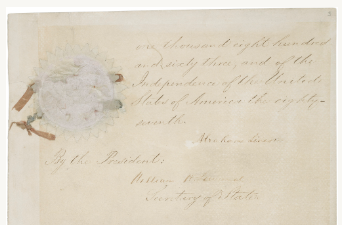 one thousand eight hundred
and sixty three, and of the
Independence of the United
States of America the eighty-
seventh.
Abraham Lincoln
By the President:
William H. Seward
Secretary of State